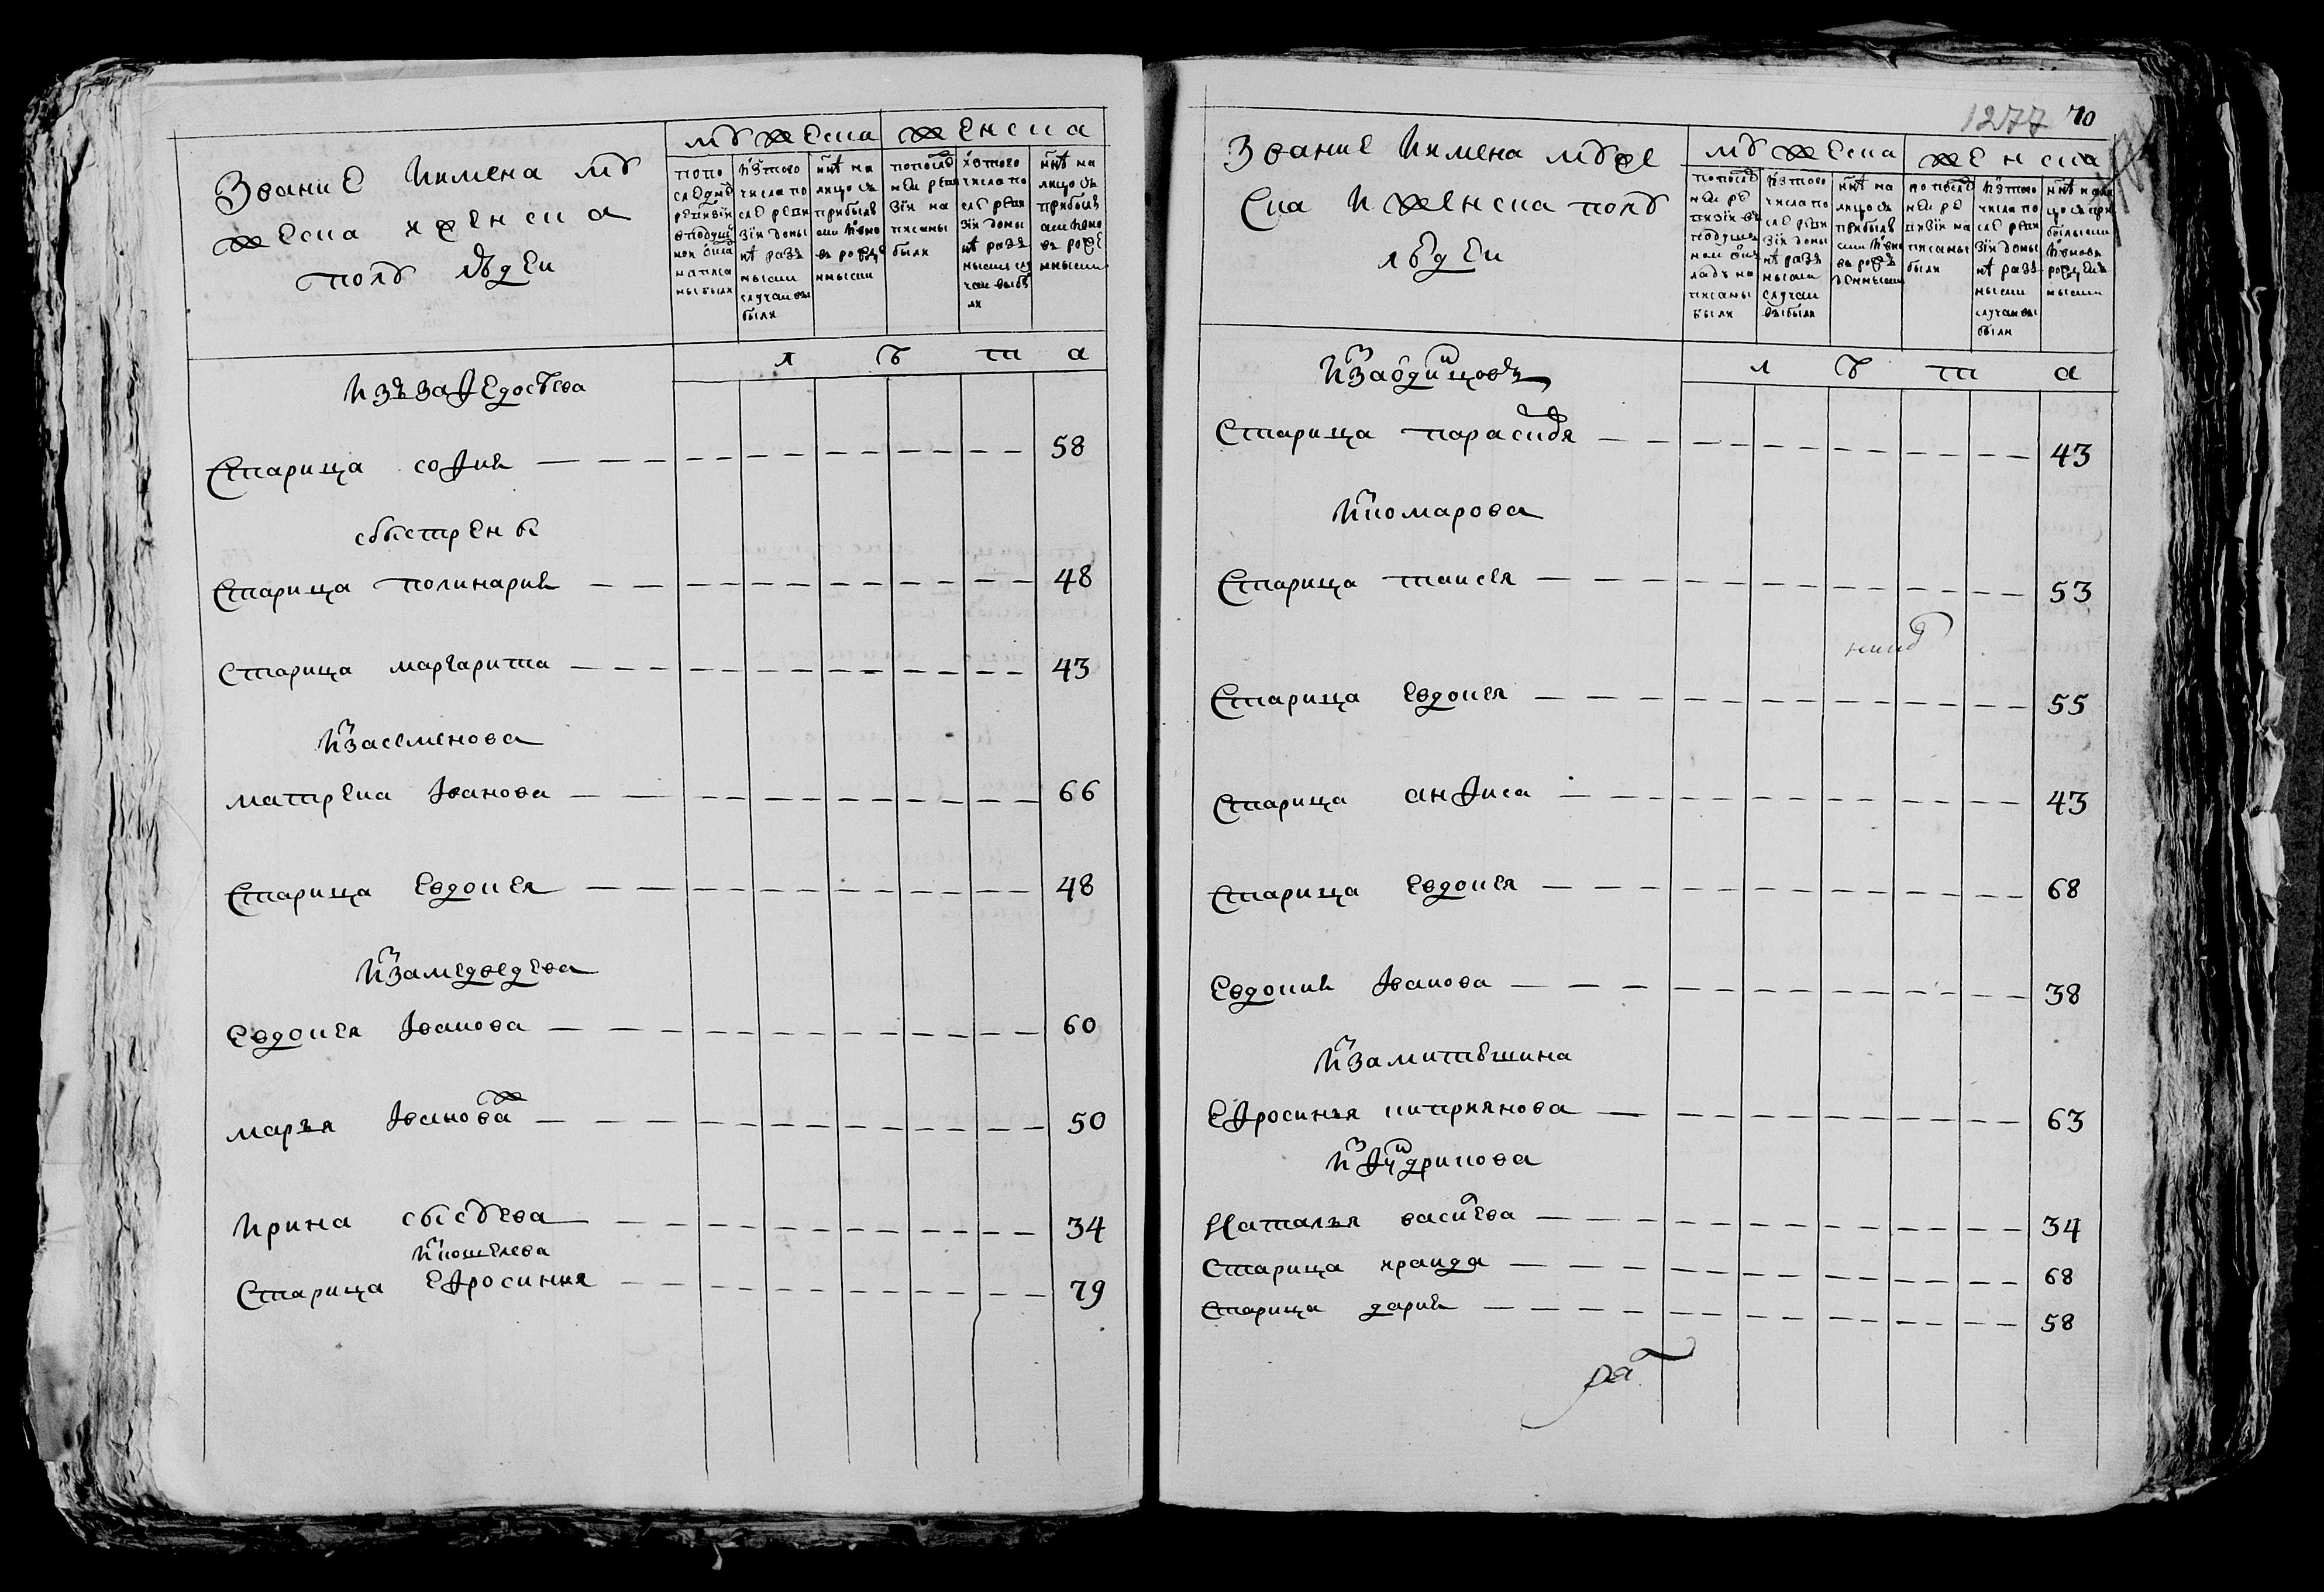 Звание Имена мꙋ
жеска иженска
полꙋ лѣдеи
мꙋжеска женска
попо
следнеи
ревизіи
вподуш
ном окла
написа
ны были
изтого
числа по
сле реви
зіи доны
нѣ разн
ыми
случаи вы
были
нынѣ на
лицо съ
прибылы
ми ивно
вь рожде
нными
попослѣд
неи реви
зіи на
писаны
были
изтого
числа по
сле реви
зіи доны
нѣ разн
ыми слу
чаи выбы
ли
нынѣ на
лицо съ
прибылы
ми ивно
вь рожде
нными
л ѣ т а
Изъ за Федосѣева
Старица софия 58
сбыстрены
Старица полинария 48
Старица маргарита 43
Изасеменова
матрена Іванова 66
Старица Евдокея 48
Изамедведева
Евдокея Іванова 60
маръя Івановаж 50
Ирина сысоева 34
Искошелева
Старица Ефросиния 79
1277 70
Звание Имена мꙋже
ска И женска полꙋ
лѣдеи
мꙋжеска женска
попослѣд
неи ре
визіи въ
подушн
ном ок
ладѣ на
писаны
были
изтого
числа по
сле реви
зіи доны
нѣ разн
ыми
случаи
выбыли
нынѣ на
лицо съ
прибылы
ми ивно
вь рожд
енными
попослѣд
неи ре
визіи на
писаны
были
изтого
числа по
сле реви
зіи доны
нѣ разн
ыми
случаи вы
были
нынѣ нали
цо съ при
былыми
ивновь
рожден
ными
л ѣ т а
Изаодинцовых
Старица парасковя 43
Искомарова
Старица таисея 53
Старица Евдокея 55
Старица анфиса 43
Старица Евдокея 68
Евдокия Іванова 38
Изамитюшина
Ефросинья киприянова 63
Наталья василева 34
Старица ираида 68
Старица дария 58